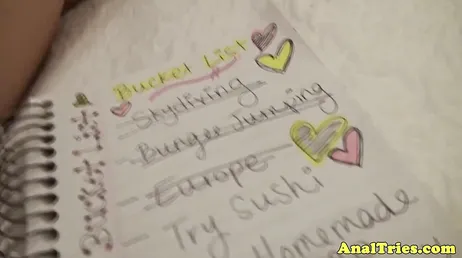 Bucket List
Bucket List
Skydiving
Bungee Jumping
Europe
Try Sushi
Homemade
AnalTries.com